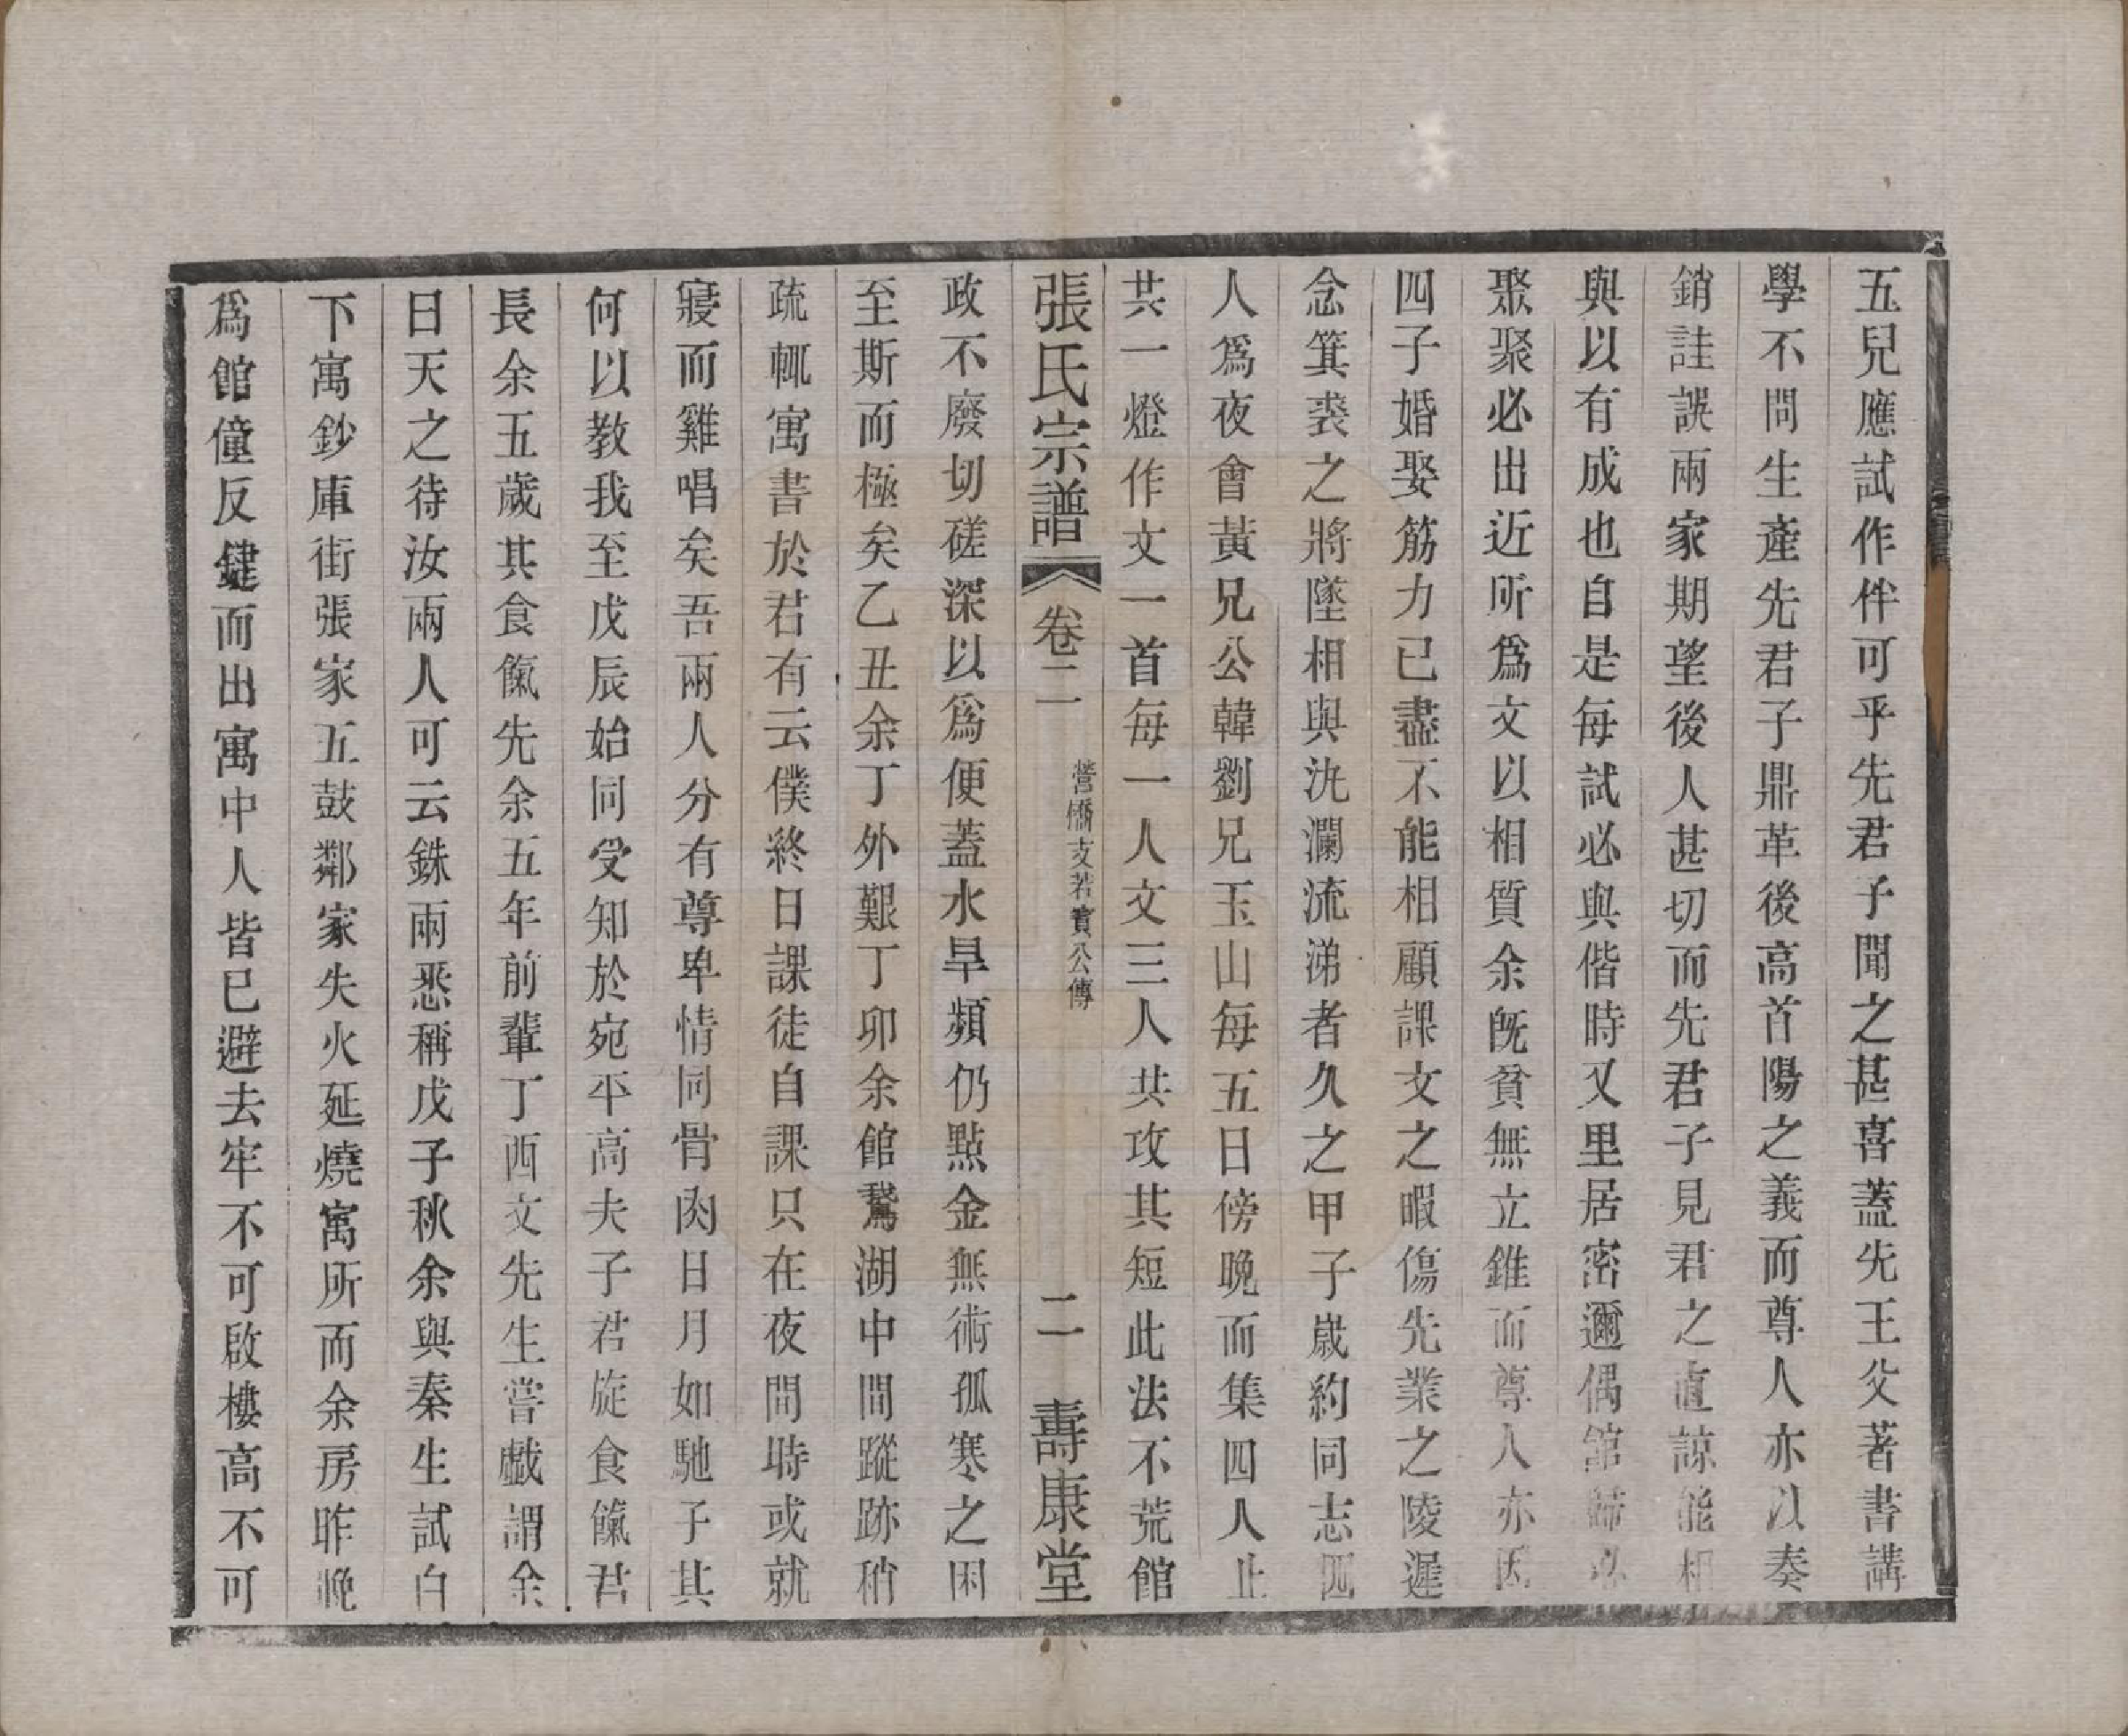 五兒應試作伴可乎先君子聞之甚喜蓋先王父著書講
學不問生產先君子鼎革後高首陽之義而尊人亦以奏
銷詿誤兩家期望後人甚切而先君子見君之直諒能相
與以有成也自是每試必與偕時又里居密邇偶館歸必
聚聚必出近所爲文以相質余既貧無立錐而尊人亦因
四子婚娶筋力已盡不能相顧課文之暇傷先業之陵遲
念箕裘之將墜相與汍瀾流涕者久之甲子歲約同志四
人爲夜會黃兄公韓劉兄玉山每五日傍晚而集四人止
共一燈作文一首每一人文三人共攻其短此法不荒館
張氏宗譜 卷二 營僑支若賓公傳 二 壽康堂
政不廢切磋深以爲便蓋水旱頻仍點金無術孤寒之困
至斯而極矣乙丑余丁外艱丁卯余館鵞湖中間蹤跡稍
疏輒寓書於君有云僕終日課徒自課只在夜間時或就
寢而雞唱矣吾兩人分有尊卑情同骨肉日月如馳子其
何以教我至戊辰始同受知於宛平高夫子君旋食餼君
長余五歲其食餼先余五年前輩丁酉文先生嘗戲謂余
曰天之待汝兩人可云銖兩悉稱戊子秋余與秦生試白
下寓鈔庫街張家五鼓鄰家失火延燒寓所而余房昨晚
爲館僮反鍵而出寓中人皆已避去牢不可啟樓高不可